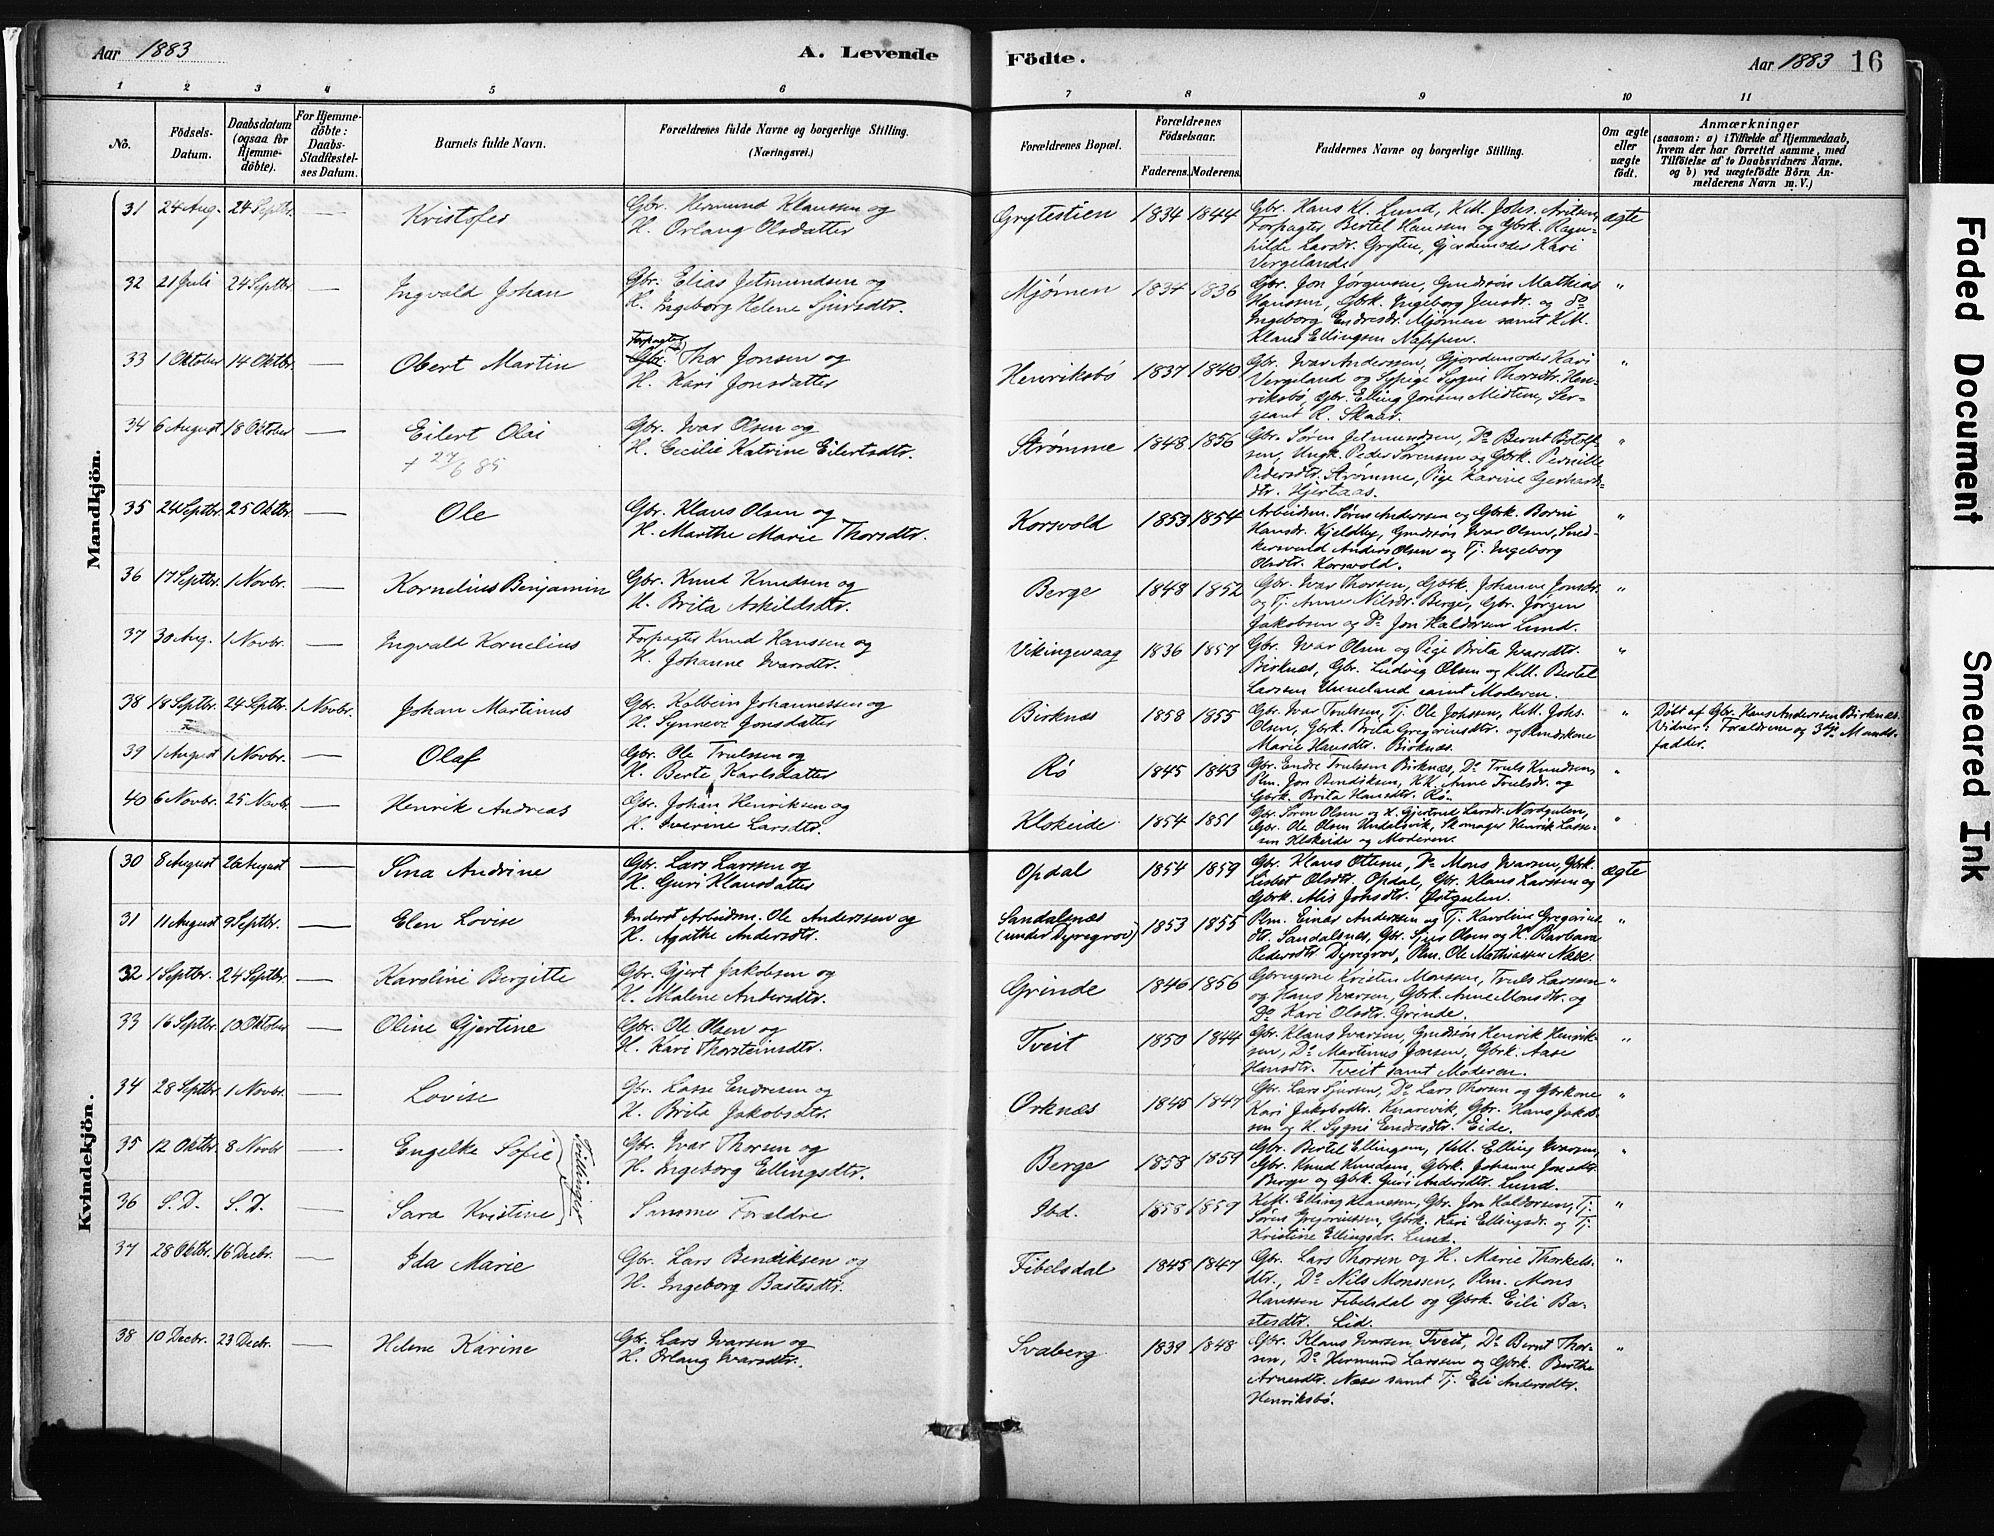 Aar 1883
A. Levende
Födte.
Aar 1883 16
1 2 3 4 5 6 7 8 9 10 11
No.
Födsels-
Datum.
Daabsdatum
(ogsaa for
Hjemme-
döbte).
For Hjemme-
döbte:
Daabs-
Stadfæstel-
ses Datum.
Barnets fulde Navn.
Forældrenes fulde Navne og borgerlige Stilling.
(Næringsvei.)
Forældrenes Bopæl.
Forældrenes
Födselsaar.
Faderens. Moderens.
Faddernes Navne og borgerlige Stilling.
Om ægte
eller
uægte
födt.
Anmærkninger
(saasom: a) i Tilfælde af Hjemmedaab,
hvem der har forrettet samme, med
Tilföielse af to Daabsvidners Navne.
og b) ved uægtefödte Börn An-
melderens Navn m. V.)
Mandkjön.
31 24 Aug. 24 Septbr. — Kristofer
Gbr. Hermund Klaussen og
H. Orlaug Olsdatter
Grytestien 1834 1844
Gbr. Hans Kl. Lund, K.M. Johs. Arilsen,
Forpagter Bertel Hanssen og Gbrk. Ragn-
hilde Larsdr. Gryten, Gjordemoder Kari
Vergelande
ægte
32 21 Juli 24 Septbr. — Ingvald Johan
Gbr. Elias Jetmundsen og
H. Ingeborg Helene Sjursdtr.
Mjømen 1834 1836
Gbr. Jon Jørgensen, Gmdsøn Mathias
Hanssen, Gbrk. Ingeborg Jensdr. og Do
Ingeborg Endresdr. Mjømen samt K.M.
Klaus Ellingsen Nappen.
"
33 1 Oktober 14 Oktbr. — Obert Martin
Forpagter
Gbr. Thor Jonsen og
H. Kari Jonsdatter
Henriksbø 1837 1840
Gbr. Ivar Anderssen, Gjordemoder Kari
Vergeland og Sypige Sygni Thorsdtr. Hen-
riksbø, Gbr. Elling Jonsen Midtun, Ser-
geant R. Skaar.
"
34 6 August 18 Oktober — Eilert Olai
+ 27/6 85
Gbr. Ivar Olsen og
H. Cecilie Katrine Eilertsdtr.
Strømme 1848 1856
Gbr. Søren Jetmundsen, Do Bernt Botolf-
sen, Ungk. Peder Sørensen og Gbrk. Pernille
Pedersdtr. Strømme, Pige Karine Gerhards-
dtr. Hjertaas.
"
35 24 Septbr. 25 Oktbr. — Ole
Gbr. Klaus Olsen og
H. Marthe Marie Thorsdtr.
Korsvold 1853 1854
Arbeidsm. Søren Anderssen og Gbrk. Borni
Hansdr. Kjeldby, Gmdsøn Ivar Olsen, Sned-
kersvend Anders Olsen og Tj. Ingeborg
Olsdtr. Korsvold.
"
36 17 Septbr. 1 Novbr. — Kornelius Benjamin
Gbr. Knud Knudsen og
H. Brita Askildsdtr.
Berge 1848 1852
Gbr. Ivar Thorsen, Gbrk. Johanne Jonsdr.
og Tj. Anne Nilsdr. Berge, Gbr. Jørgen
Jakobsen og Do Jon Haldorsen Lund.
"
37 30 Aug. 1 Novbr. — Ingvald Kornelius
Forpagter Knud Hanssen og
H. Johanne Ivarsdtr.
Vikingevaag 1836 1857
Gbr. Ivar Olsen og Pige Brita Ivarsdtr.
Birknæs, Gbr. Ludvig Olsen og K.M. Bertel
Larssen Unneland samt Moderen.
"
38 18 Septbr. 24 Septbr. 1 Novbr. Johan Martinus
Gbr. Kolbein Johannessen og
H. Synneve Jonsdatter
Birknæs 1858 1855
Gbr. Ivar Trulssen, Tj. Ole Johssen, K.M. Johs.
Olsen, Gbrk. Brita Gregoriusdtr. og
Marie Hansdtr. Birknæs.
"
Döbt af Gbr. Hans Anderssen Birknæs.
Vidner: Forældrene og 3dje Mands-
fadder.
39 1 August 1 Novbr. — Olaf
Gbr. Ole Trulssen og
H. Berte Karlsdatter
Rø 1845 1843
Gbr. Endre Trulssen Birknæs, Do Truls Knudsen,
Plm. Jon Bendiksen, K.K. Anne Trulsdr. og
Gbrk. Brita Hansdtr. Rø.
"
40 6 Novbr. 25 Novbr. — Henrik Andreas
Gbr. Johan Henriksen og
H. Iverine Larsdtr.
Klokeide 1854 1851
Gbr. Søren Olsen og H. Gjertrud Larsdr. Nordgulen,
Gbr. Ole Olsen Undalsvik, Skomager Henrik Lasse-
sen Klokeide og Moderen.
"
Kvindekjön.
30 8 August 26 August — Sina Andrine
Gbr. Lars Larssen og
H. Guri Klausdatter
Opdal 1854 1859
Gbr. Klaus Ottesen, Do Mons Ivarsen, Gbrk.
Lisbet Olsdtr. Opdal, Gbr. Klaus Larssen og
Gbrk. Alis Johsdtr. Østgulen.
ægte
31 11 August 9 Septbr. — Elen Lovise
Inderst Arbeidsm. Ole Anderssen og
H. Agathe Andersdtr.
Sandalsnæs
(under Dyregrov) 1853 1855
Plm. Einar Anderssen og Tj. Karoline Gregorius-
dtr. Sandalsnæs, Gbr. Sjur Olsen og H. Barbara
Pedersdtr. Dyregrov, Plm. Ole Mathiassen
"
32 1 Septbr. 24 Septbr. — Karoline Bergitte
Gbr. Gjert Jakobsen og
H. Malene Andersdtr.
Grinde 1846 1856
Gbrugerne Kristen Monssen, Truls Larssen
og Hans Ivarsen, Gbrk. Anne Monsdtr. og
Do Kari Olsdtr. Grinde.
"
33 16 Septbr. 10 Oktober — Oline Gjertine
Gbr. Ole Olsen og
H. Kari Thorsteinsdtr.
Tveit 1850 1844
Gbr. Klaus Ivarsen, Gmdssøn Henrik Henrik-
sen, Do Martinus Jonsen, Gbrk. Aase
Hansdtr. Tveit samt Moderen.
"
34 28 Septbr. 1 Novbr. — Lovise
Gbr. Lasse Endresen og
H. Brita Jakobsdtr.
Orknæs 1845 1847
Gbr. Lars Sjursen, Do Lars Thorsen og Gbrkone
Kari Jakobsdtr. Knarvik, Gbr. Hans Jakob-
sen og H. Sygni Endresdtr. Eide.
"
35 12 Oktbr. 8 Novbr — Engelke Sofie
Tvillinger
Gbr. Ivar Thorsen og
H. Ingeborg Ellingsdtr.
Berge 1858 1859
Gbr. Bertel Ellingsen, K.M. Elling Ivarsen,
Gbr. Knud Knudsen, Gbrk. Johanne Jonsdtr.
Berge og Gbrk. Guri Andersdtr. Lund.
"
36 S.D. S.D. — Sara Kristine
Samme Forældre
Ibd. 1858 1859
K.M. Elling Klaussen, Gbr. Jon Haldorsen, Tj.
Søren Gregoriussen, Gbrk. Kari Ellingsdr. og Tj.
Kristine Ellingsdr. Lund.
"
37 28 Oktbr. 16 Decbr. — Ida Marie
Gbr. Lars Bendiksen og
H. Ingeborg Bastesdtr.
Fibelsdal 1845 1847
Gbr. Lars Thorsen og H. Marie Thorkels-
dtr., Do Nils Monssen, Plm. Mons
Hanssen Fibelsdal og Gbrk. Eili Ba-
stesdtr. Lid.
"
38 10 Decbr. 23 Decbr. — Helene Karine
Gbr. Lars Ivarsen og
H. Orlaug Ivarsdtr.
Svaberg 1839 1848
Gbr. Klaus Ivarsen Tveit, Do Bernt Thor-
sen, Do Hermund Larssen og Gbrk. Berthe
Arnesdtr. Næse samt Tj. Eli Andersdtr.
Henriksbø.
"
Faded Document
Smeared Ink